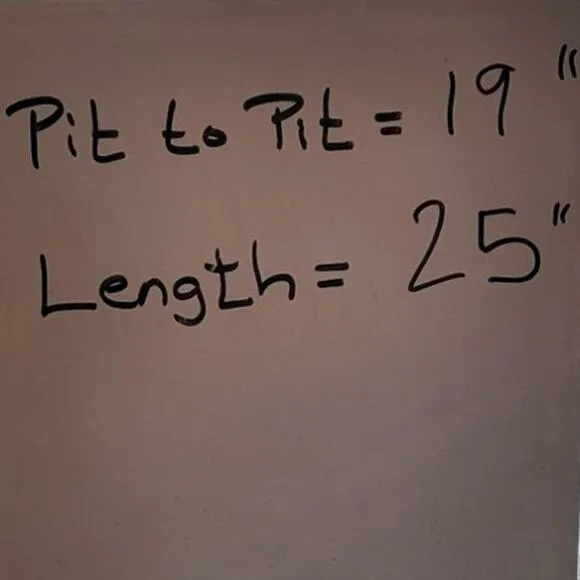 Pit to Pit = 19"
Length = 25"